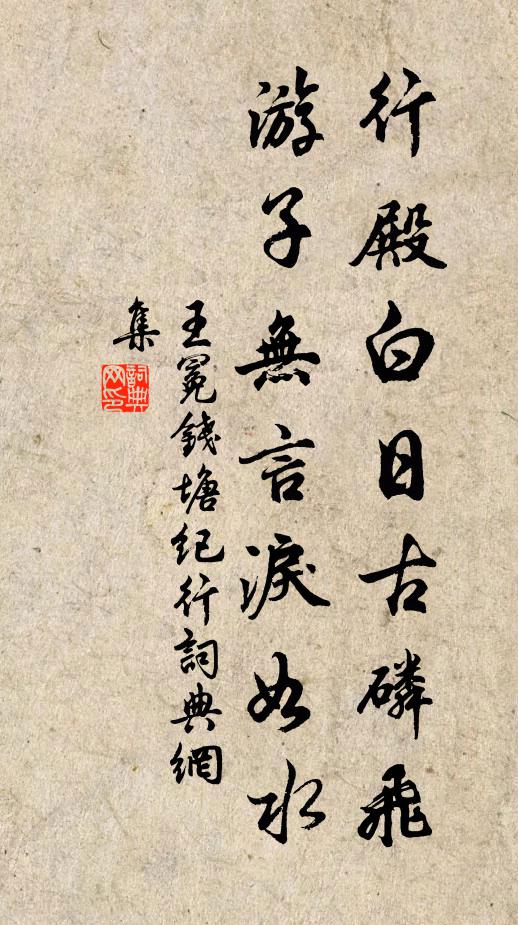 行殿白日古磷飛
游子無言淚如水
王冕錢塘紀行詞典網
集
詞典
网印